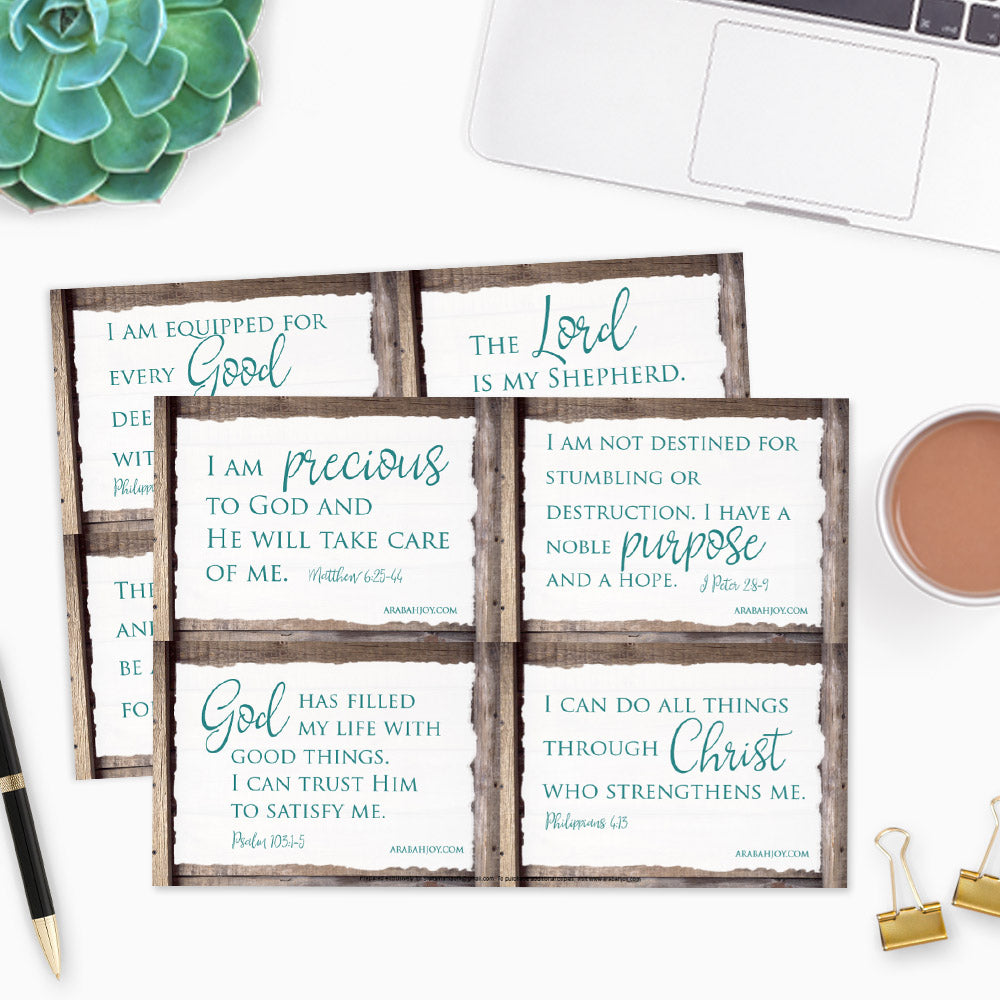 I AM EQUIPPED FOR
EVERY Good
DEE
WIT
Philipp
THE Lord
IS MY SHEPHERD.
THE
AN
BE
FO
I AM precious
TO GOD AND
HE WILL TAKE CARE
OF ME. Matthew 6:25-44
ARABAHJOY.COM
I AM NOT DESTINED FOR
STUMBLING OR
DESTRUCTION. I HAVE A
NOBLE purpose
AND A HOPE. I Peter 2:8-9
ARABAHJOY.COM
God HAS FILLED
MY LIFE WITH
GOOD THINGS.
I CAN TRUST HIM
TO SATISFY ME.
Psalm 103:1-5
ARABAHJOY.COM
I CAN DO ALL THINGS
THROUGH Christ
WHO STRENGTHENS ME.
Philippians 4:13
ARABAHJOY.COM
To purchase additional copies, visit www.arabahjoy.com